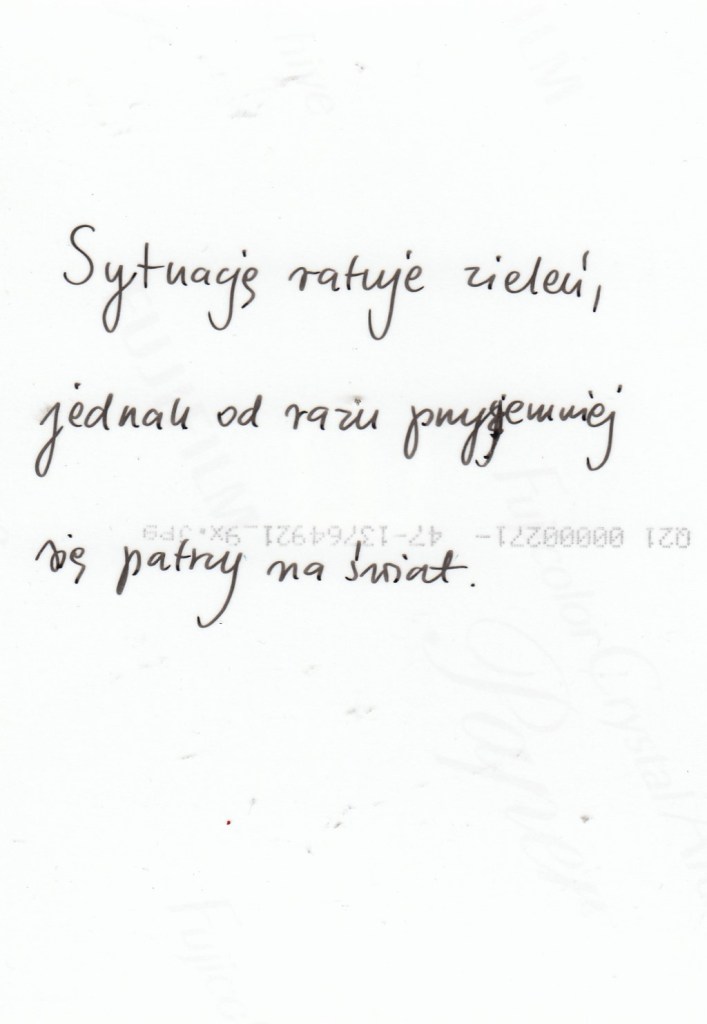 Sytuację ratuje zieleń,
jednak od razu przyjemniej
się patrzy na świat.
Q21 00000271- 47-13764921_9x.JPG